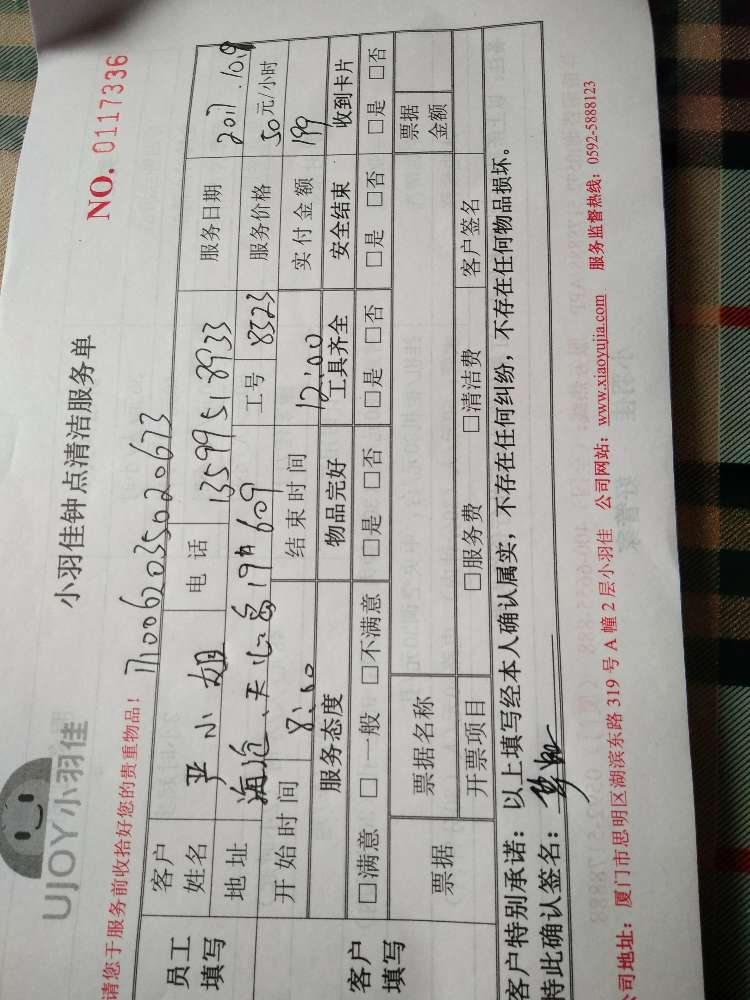 UJOY小羽佳
小羽佳钟点清洁服务单
NO. 0117336
请您于服务前收拾好您的贵重物品！
1710062035020673
员工填写
客户姓名 严小姐 电话 13599518933 服务日期 2017.10.9
地址 海沧、天心岛19# 609 工号 8323 服务价格 50元/小时
开始时间 8:00 结束时间 12:00 实付金额 199
客户填写
服务态度 物品完好 工具齐全 安全结束 收到卡片
□满意 □一般 □不满意 □是 □否 □是 □否 □是 □否 □是 □否
票据 票据名称 票据金额
开票项目 □服务费 □清洁费 客户签名
客户特别承诺：以上填写经本人确认属实，不存在任何纠纷，不存在任何物品损坏。
特此确认签名：
公司地址：厦门市思明区湖滨东路 319 号 A 幢 2 层小羽佳 公司网站：www.xiaoyujia.com 服务监督热线：0592-5888123